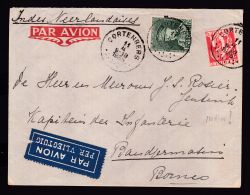 Indes Néerlandaises
PAR AVION
CORTENBERG
CORTENBERG
De Heer en Mevrouw J. S. Rosier-
Kapitein der Infanterie
PAR AVION
PER VLIEGTUIG
Bandjermasin
Borneo